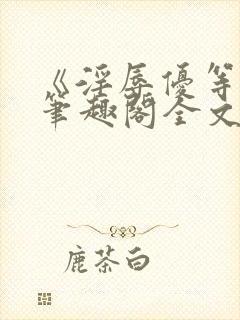 《淫辱優等
筆趣閣全文
鹿茶白